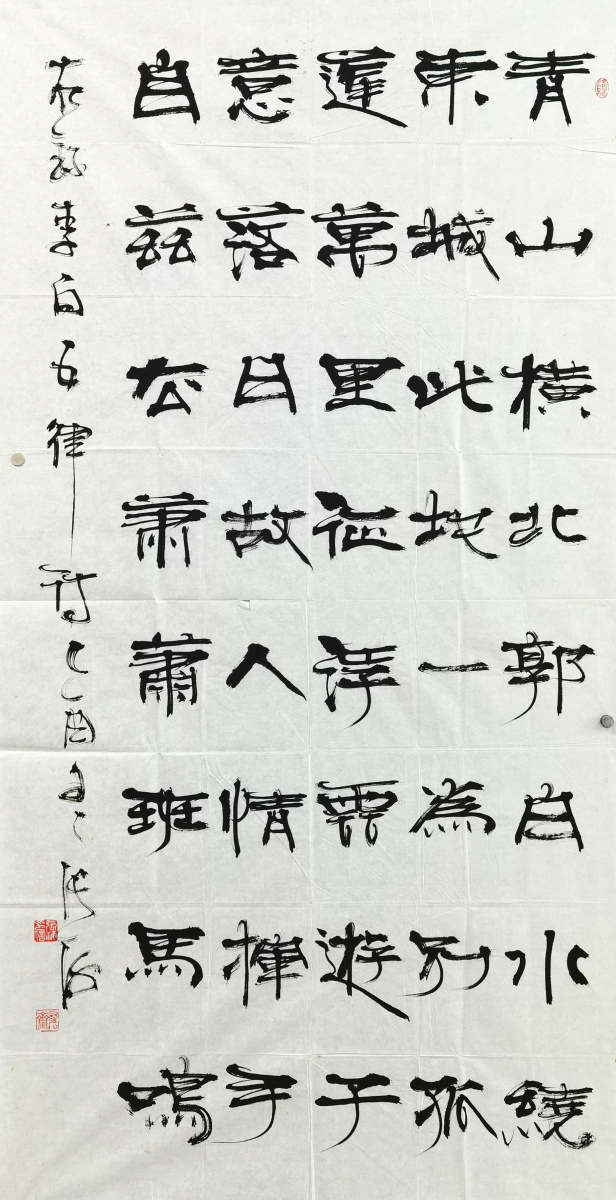 青山橫北郭白水繞
東城此地一為別孤
蓬萬里征浮雲遊子
意落日故人情揮手
自茲去蕭蕭班馬鳴
右錄李白五律一詩乙酉張海